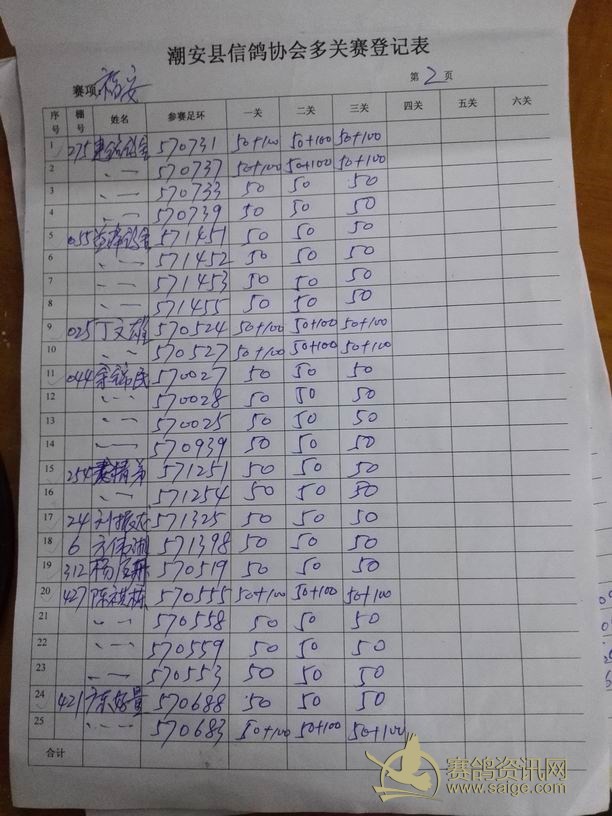 潮安县信鸽协会多关赛登记表
赛项: 福安 第 2 页
序号 棚号 姓名 参赛足环 一关 二关 三关 四关 五关 六关
1 275 570731 50+100 50+100 50+100
2 〃 — 570737 50+100 50+100 50+100
3 〃 — 570733 50 50 50
4 〃 — 570739 50 50 50
5 055 571451 50 50 50
6 〃 — 571452 50 50 50
7 〃 — 571453 50 50 50
8 〃 — 571455 50 50 50
9 025 丁文雄 570524 50+100 50+100 50+100
10 〃 〃 570527 50+100 50+100 50+100
11 044 余锦民 570027 50 50 50
12 〃 — 570028 50 50 50
13 〃 — 570025 50 50 50
14 〃 — 570939 50 50 50
15 254 571251 50 50 50
16 〃 — 571254 50 50 50
17 24 571325 50 50 50
18 6 571398 50 50 50
19 312 570519 50 50 50
20 427 陈祺栋 570555 50+100 50+100 50+100
21 〃 — 570558 50 50 50
22 〃 — 570559 50 50 50
23 〃 — 570553 50 50 50
24 421 570688 50 50 50
25 〃 — 570683 50+100 50+100 50+100
合计
赛鸽资讯网
www.saige.com